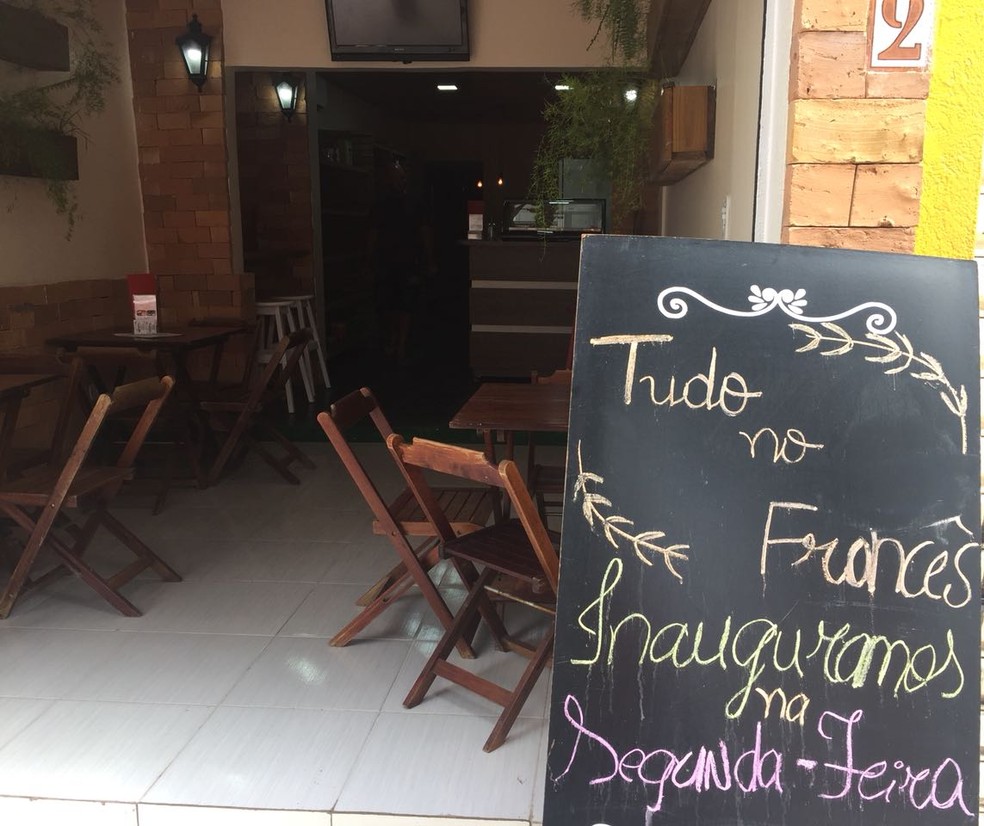 2
Tudo
no
Francês
Inauguramos
na
Segunda-Feira